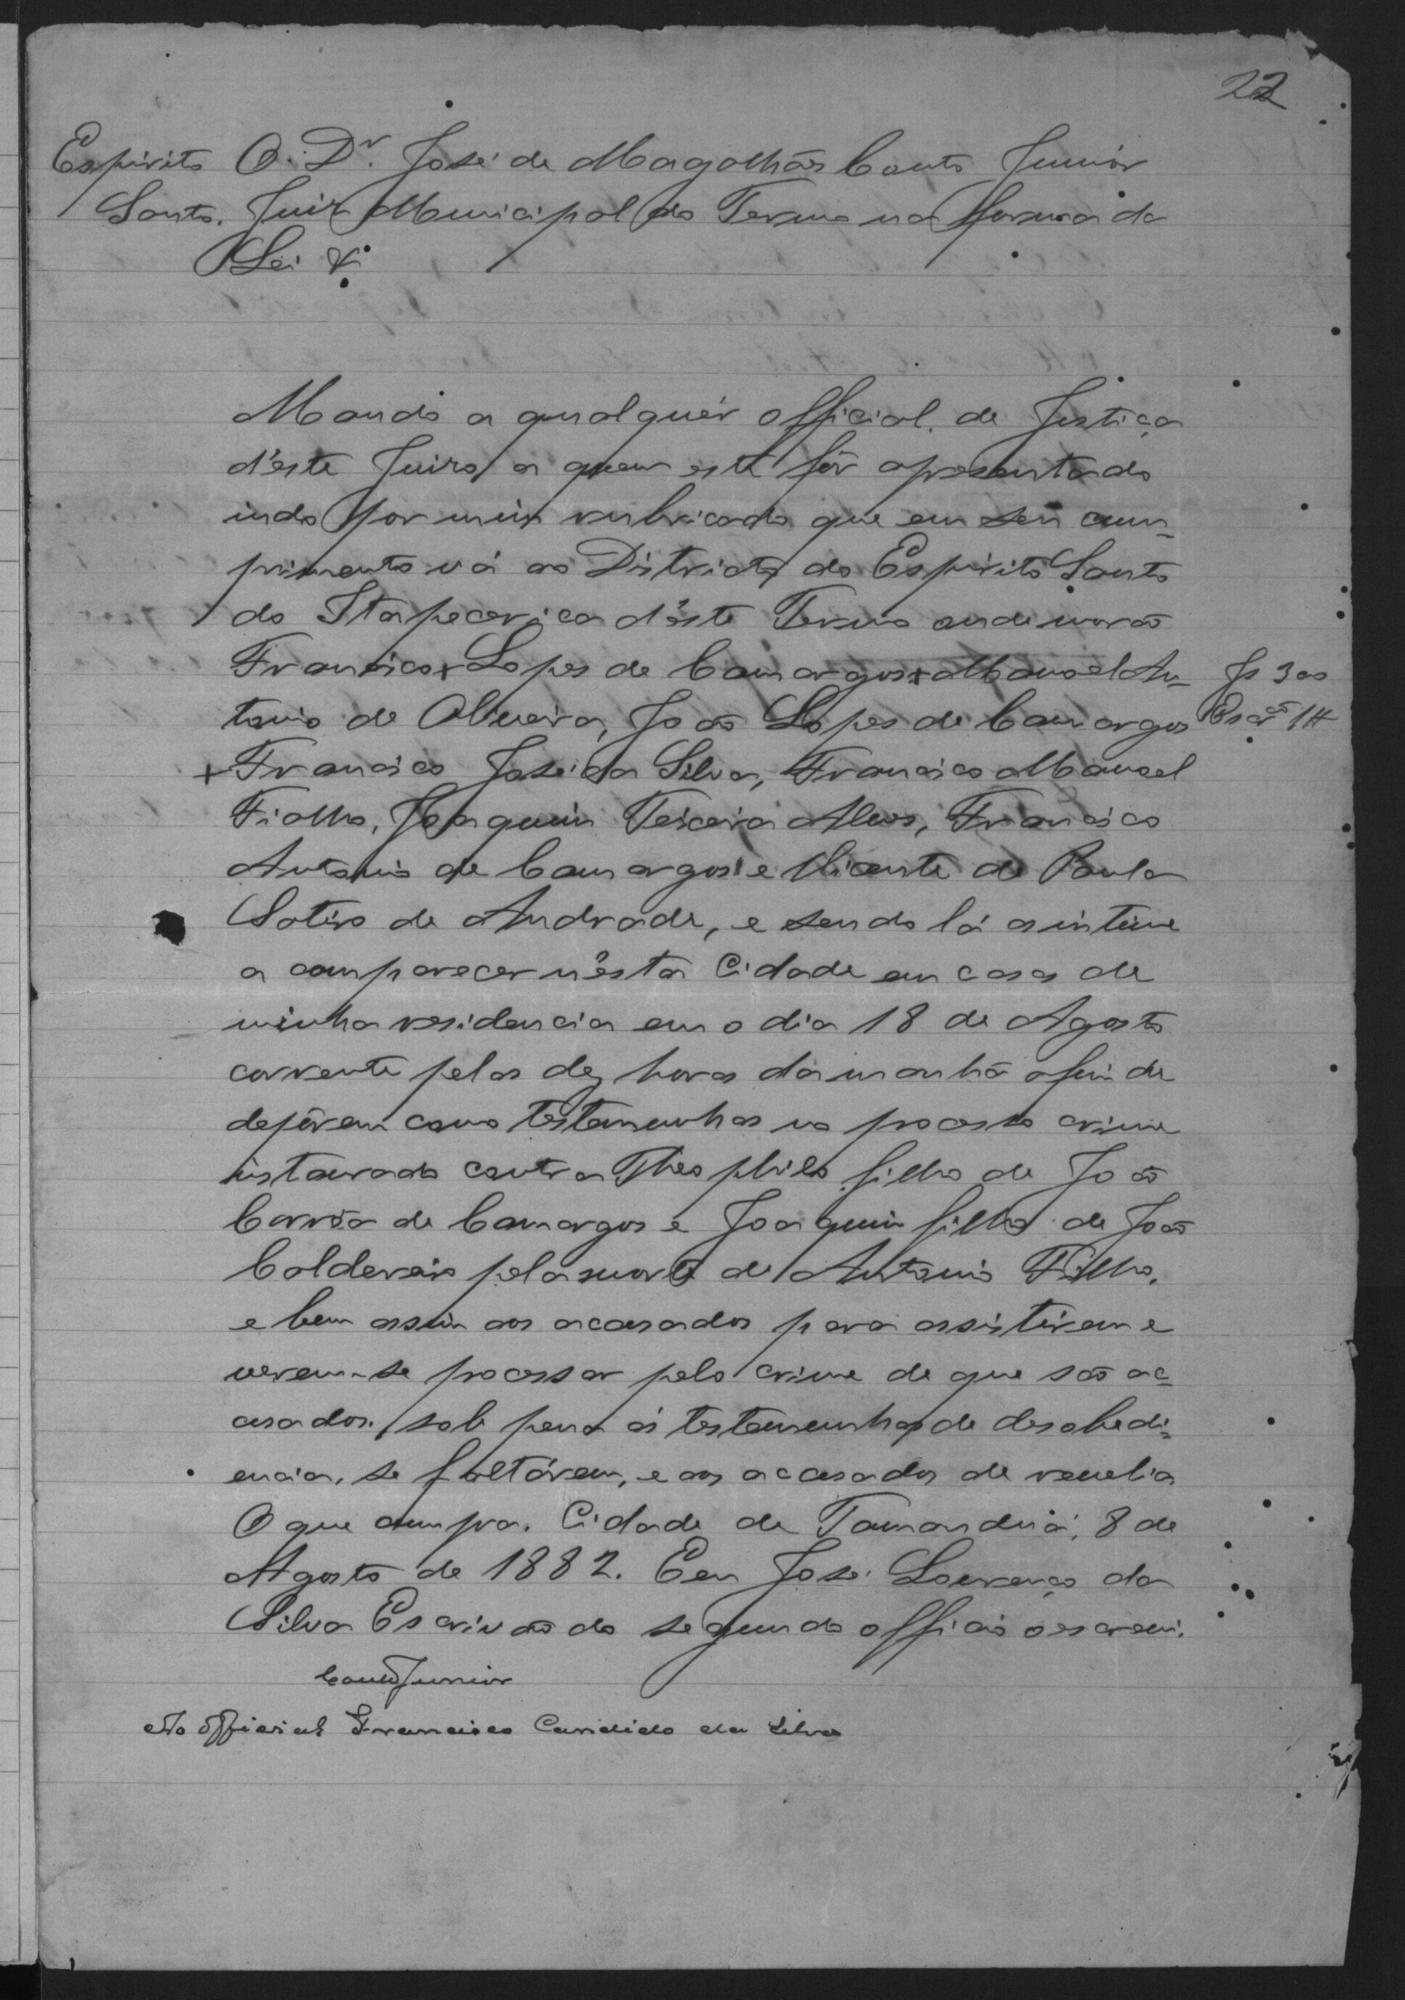 22
Espirito O. Dr. José de Magalhães Couto Junior
Santo. Juiz Municipal do Termo na forma da
Lei &
Mando a qualquér official de Justiça
d'este Juizo a quem este fôr apresentado
indo por mim rubricado que em seu cum-
primento vá ao Districto do Espirito Santo
do Itapecerica d'este Termo onde morão
Francisco Lopes de Camargos Manoel An- Js 300
tonio de Oliveira, João Lopes de Camargos
Francisco José da Silva, Francisco Manoel
Fialho, Joaquim Teixeira Alves, Francisco
Antonio de Camargos e Vicente de Paula
Sotéro de Andrade, e sendo lá os intime
a comparecer n'esta Cidade em casa de
minha residencia em o dia 18 de Agosto
corrente pelas dez horas da manhã afim de
depôrem como testemunhas no processo crime
instaurado contra Theophilo filho de João
Corrêa de Camargos e Joaquim filho de João
Caldereiro pela morte de Antonio Filho,
e bem assim aos acusados para assistirem e
verem-se processar pelo crime de que são ac-
cusados. sob pena ás testemunhas de desobedi-
encia, se faltárem, e aos accusados de revelia
O que cumpra. Cidade de Tamanduá, 8 de
Agosto de 1882. Eeu José Lourenço da
Silva Escrivão do segundo officio o escrevi.
Couto Junior
Ao official Francisco Candido da Silva